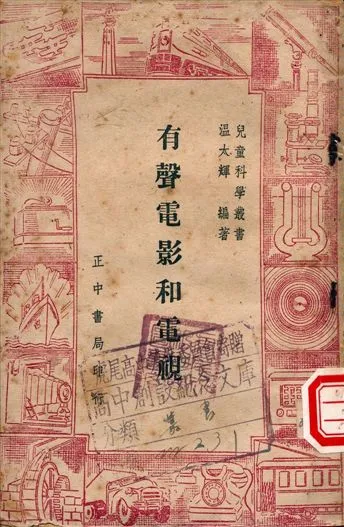 兒童科學叢書
溫太輝 編著
有聲電影和電視
正中書局印行
分類 叢書
231